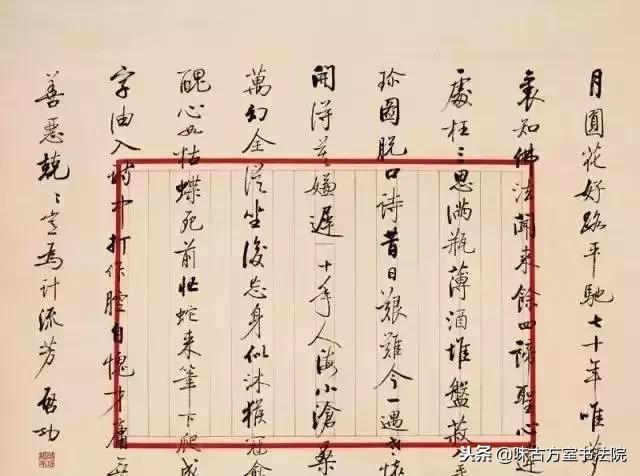 月圓花好路平馳七十年唯
裏知佛法聞來餘四諦聖心違
處枉三思滿瓶薄酒堆盤
珍圖脫口詩昔日艱難今一遇老懷
開得莫嫌遲 十年人海小滄桑
萬幻全從坐後忘身似沐猴冠愈
醜心如枯蝶死前忙蛇來筆下爬成
字油入詩中打作腔自愧才庸無
善惡兢〻豈為計流芳 啟功
头条 @味古方室书法院